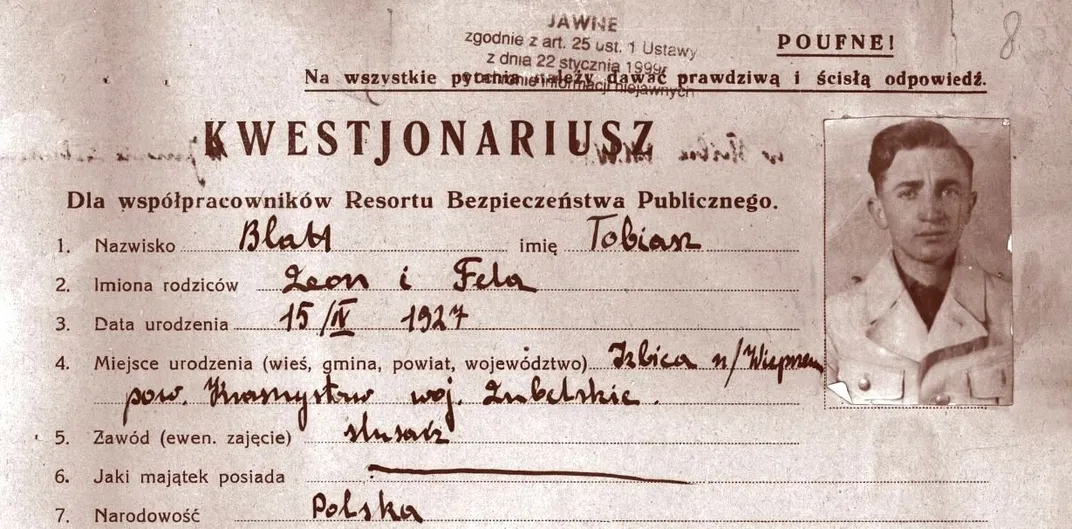 JAWNE
zgodnie z art. 25 ust. 1 Ustawy
z dnia 22 stycznia 1999r
o ochronie informacji niejawnych
POUFNE!
8
Na wszystkie pytania należy dawać prawdziwą i ścisłą odpowiedź.
KWESTJONARIUSZ
Dla współpracowników Resortu Bezpieczeństwa Publicznego.
1. Nazwisko Blatt imię Tobiasz
2. Imiona rodziców Leon i Fela
3. Data urodzenia 15/IV 1927
4. Miejsce urodzenia (wieś, gmina, powiat, województwo) Izbica n/Wieprzem
pow. Krasnystaw woj. Lubelskie.
5. Zawód (ewen. zajęcie) ślusarz
6. Jaki majątek posiada
7. Narodowość Polska